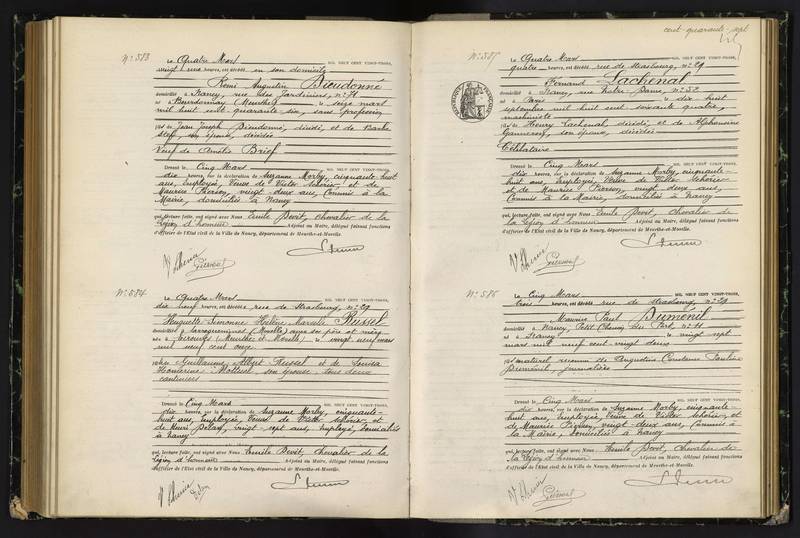 cent-quarante-sept
N° 583
Le Quatre Mars MIL NEUF CENT VINGT-TROIS,
vingt une heures, est décédé en son domicile
Remi Augustin Dieudonné
domicilié à Nancy, rue des Jardiniers, n° 71
né à Bourdonnay (Meurthe) le seize mars
mil huit cent quarante six, sans profession
fils de Jean Joseph Dieudonné, décédé, et de Barbe
son épouse, décédée
Veuf de Amélie Brief
Dressé le Cinq Mars MIL NEUF CENT VINGT-TROIS,
dix heures, sur la déclaration de Suzanne Morby, cinquante-huit
ans, employée, Veuve de Victor et de
Maurice Pierson, vingt-deux ans, Commis à la
Mairie, domiciliés à Nancy
qui, lecture faite, ont signé avec Nous Emile Devit, chevalier de la
Légion d'honneur Adjoint au Maire, délégué faisant fonctions
d'officier de l'État civil de la Ville de Nancy, département de Meurthe-et-Moselle.
N° 584
Le Quatre Mars MIL NEUF CENT VINGT-TROIS,
dix neuf heures, est décédée rue de Strasbourg, n° 29
Huguette Simonne Hélène Marcelle Russel
domiciliée à Sarreguemines (Moselle) avec ses père et mère
née à (Meurthe et Moselle) le vingt neuf mars
mil neuf cent onze
fille de Guillaume Albert Russel et de Louisa
son épouse, tous deux
Dressé le Cinq Mars MIL NEUF CENT VINGT-TROIS,
dix heures, sur la déclaration de Suzanne Morby, cinquante-
huit ans, employée, Veuve de Victor et
de Henri vingt-sept ans, employé, domiciliés
à Nancy
qui, lecture faite, ont signé avec Nous Emile Devit, chevalier de la
Légion d'honneur Adjoint au Maire, délégué faisant fonctions
d'officier de l'État civil de la Ville de Nancy, département de Meurthe-et-Moselle.
N° 585
Le Quatre Mars MIL NEUF CENT VINGT-TROIS,
quatre heures, est décédé rue de Strasbourg, n° 29
Fernand Lachenal
domicilié à Nancy, rue Notre-Dame, n° 52
né à Paris le dix huit
septembre mil huit cent soixante quatre,
machiniste
fils de Henry Lachenal décédé, et de Alphonsine
son épouse, décédée
Célibataire
Dressé le Cinq Mars MIL NEUF CENT VINGT-TROIS,
dix heures, sur la déclaration de Suzanne Morby, cinquante-
huit ans, employée, Veuve de Victor
et de Maurice Pierson, vingt deux ans,
Commis à la Mairie, domiciliés à Nancy
qui, lecture faite, ont signé avec Nous Emile Devit, chevalier de
la Légion d'honneur Adjoint au Maire, délégué faisant fonctions
d'officier de l'État civil de la Ville de Nancy, département de Meurthe-et-Moselle.
N° 586
Le Cinq Mars MIL NEUF CENT VINGT-TROIS,
trois heures, est décédé rue de Strasbourg, n° 29
Maurice Paul Dumenil
domicilié à Nancy, Petit Chemin du Port, n° 11
né à Nancy le vingt sept
mars mil neuf cent vingt deux
fils naturel reconnu de Augustine Constance Pauline
Dumenil, journalière
Dressé le Cinq Mars MIL NEUF CENT VINGT-TROIS,
dix heures, sur la déclaration de Suzanne Morby, cinquante-
huit ans, employée, Veuve de Victor et
de Maurice Pierson, vingt-deux ans, Commis à
la Mairie, domiciliés à Nancy
qui, lecture faite, ont signé avec Nous Emile Devit, Chevalier de
la Légion d'honneur Adjoint au Maire, délégué faisant fonctions
d'officier de l'État civil de la Ville de Nancy, département de Meurthe-et-Moselle.